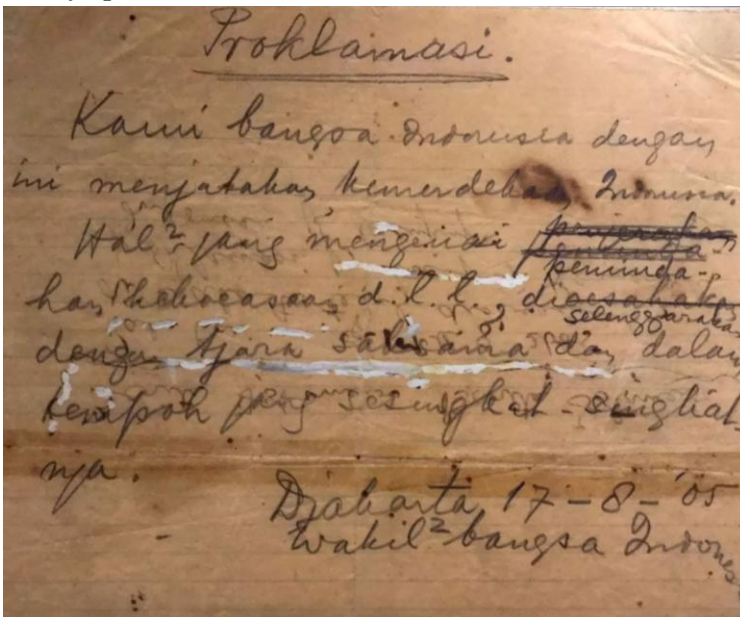 Proklamasi.
Kami bangsa Indonesia dengan
ini menjatakan kemerdekaan Indonesia.
Hal² jang mengenai penjerahan
peminda-
han kekoeasaan d.l.l., dioesahakan
selenggarakan
dengan tjara saksama dan dalam
tempoh jang sesingkat-singkat-
nja.
Djakarta, 17 - 8 - '05
Wakil² bangsa Indones